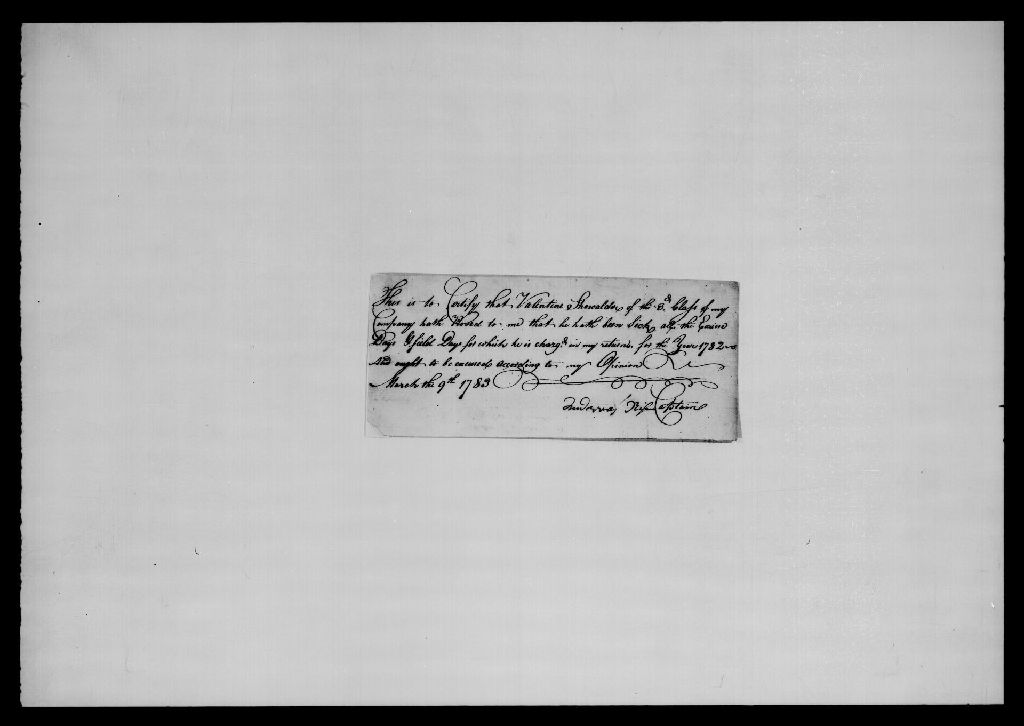 This is to Certify that Valentine Showalder of the 3d Class of my
Company hath Proved to me that he hath been Sick all the Exercise
Days & field Days for which he is charg.d in my returns for the Year 1782
And ought to be excused according to my Opinion
March the 9th 1783
Captain